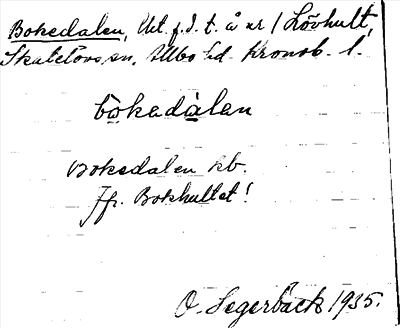 Bokedalen, Ukl f.d. t. å nr 1 Lövhult,
Skatelövs sn. Allbo hd. Kronob. l.
bòkedàlen
Bokedalen kb.
Jfr. Bokhultet!
O. Segerbäck 1935.